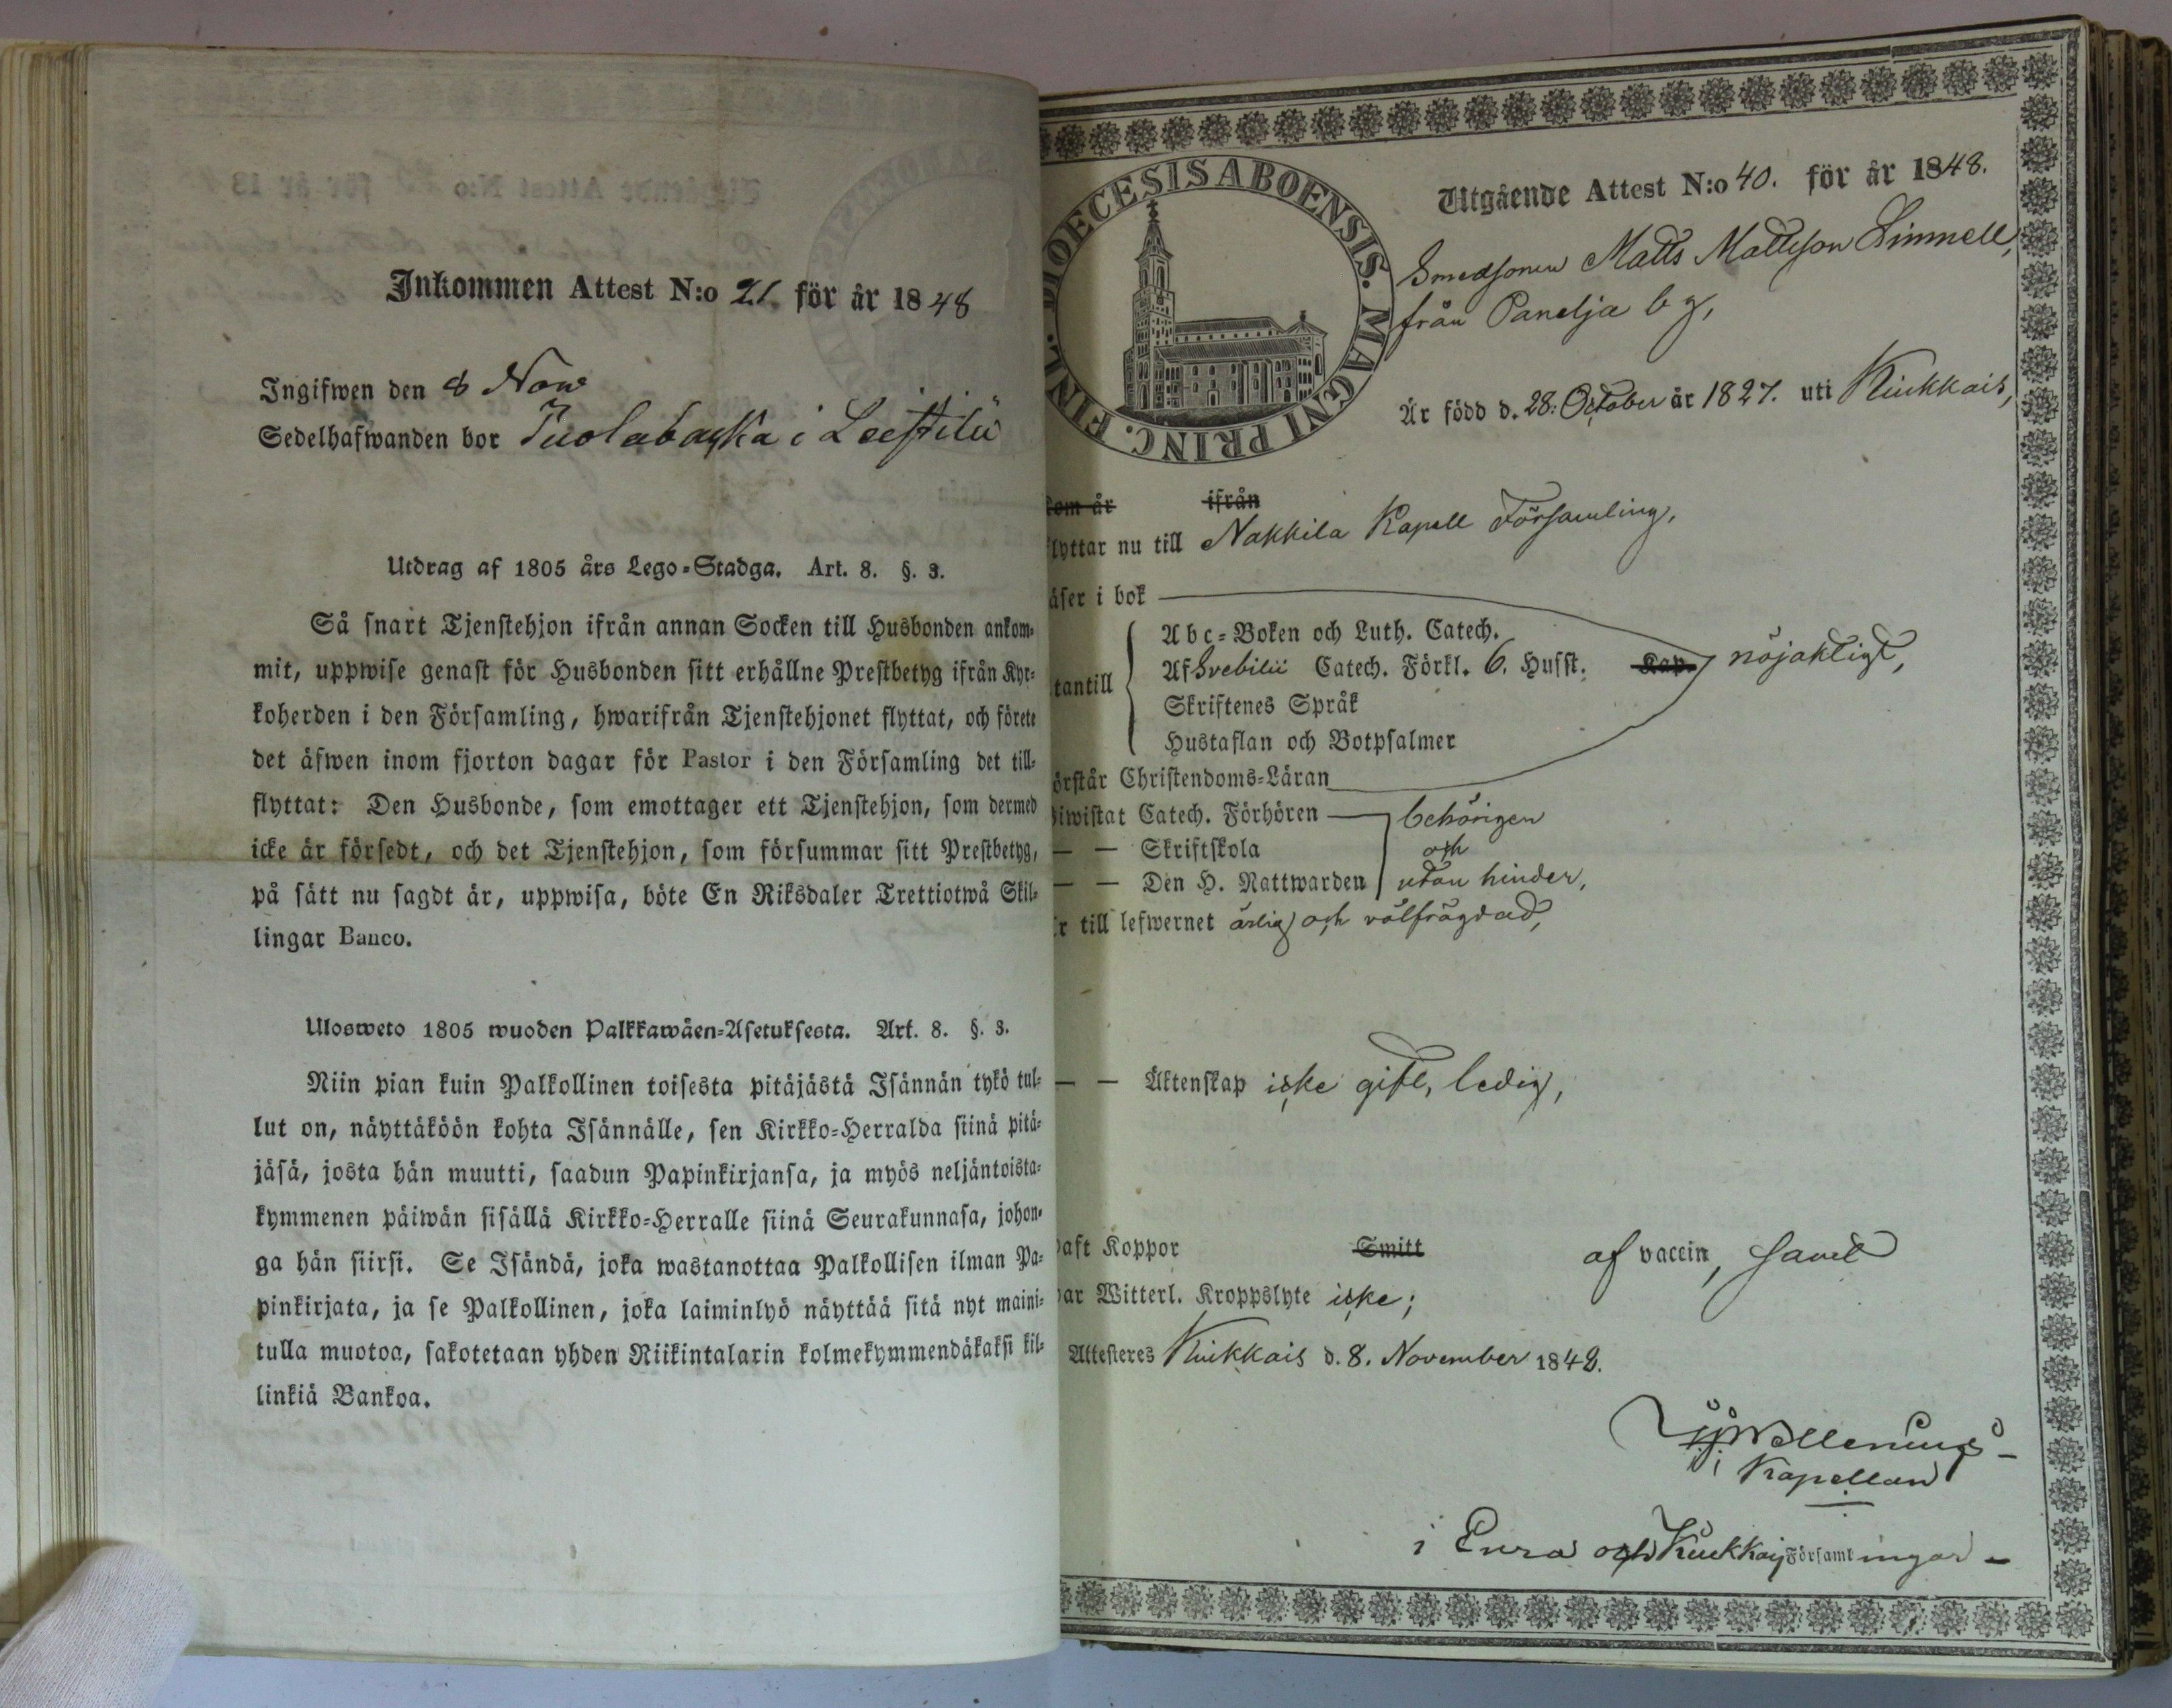 Inkommen Attest N:o 21. för år 1848
Ingifwen den 8 Now
Sedelhafwanden bor i Leistilä
Utdrag af 1805 års Lego-Stadga. Art. 8. §. 3.
Så snart Tjenstehjon ifrån annan Socken till Husbonden ankom-
mit, uppwise genast för Husbonden sitt erhållne Prestbetyg ifrån Kyr-
koherden i den Församling, hwarifrån Tjenstehjonet flyttat, och förete
det äfwen inom fjorton dagar för Pastor i den Församling det till-
flyttat: Den Husbonde, som emottager ett Tjenstehjon, som dermed
icke är försedt, och det Tjenstehjon, som försummar sitt Prestbetyg,
på sätt nu sagdt är, uppwisa, böte En Riksdaler Trettiotwå Skil-
lingar Banco.
Ulosweto 1805 wuoden Palkkawäen-Asetuksesta. Art. 8. §. 3.
Niin pian kuin Palkollinen toisesta pitäjästä Isännän tykö tul-
lut on, näyttäköön kohta Isännälle, sen Kirkko-Herralda siinä pitä-
jäsä, josta hän muutti, saadun Papinkirjansa, ja myös neljäntoista-
kymmenen päiwän sisällä Kirkko-Herralle siinä Seurakunnasa, johon-
ga hän siirsi. Se Isändä, joka wastanottaa Palkollisen ilman Pa-
pinkirjata, ja se Palkollinen, joka laiminlyö näyttää sitä nyt maini-
tulla muotoa, sakotetaan yhden Riikintalarin kolmekymmendäkaksi kil-
linkiä Bankoa.
FINL. DIOECESIS ABOENSIS. MAGNI PRINC.
Utgående Attest N:o 40. för år 1848.
Smedsonen Matts Mattsson Linnell,
från Panelja by,
Är född d. 28: October år 1827. uti Kiukkais,
kom år ifrån
flyttar nu till Nakkila Kapell Församling,
äser i bok
Abc-Boken och Luth. Catech.
tantill Af Svebilii Catech. Förkl. 6. Husst. Kap. nöjaktigt,
Skriftenes Språk
Hustaflan och Botpsalmer
örstår Christendoms-Läran
iwistat Catech. Förhören behörigen
— — Skriftskola och
— — Den H. Nattwarden utan hinder,
r till lefwernet ärlig och välfrägdad,
— — Äktenskap icke gift, ledig,
aft Koppor Smitt af vaccin, havt
ar Witterl. Kroppslyte icke;
Attesteres Kiukkais d. 8. November 1848.
Kapellan
i Eura och Kiukkais Församlingar —